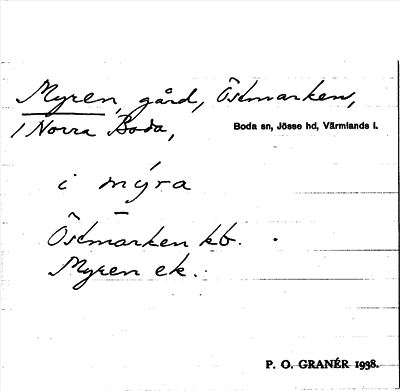 Myren, gård, Östmarken,
i Norra Boda,
Boda sn, Jösse hd, Värmlands l.
i mýra
Östmarken kb.
Myren ek.
P. O. GRANÉR 1938.